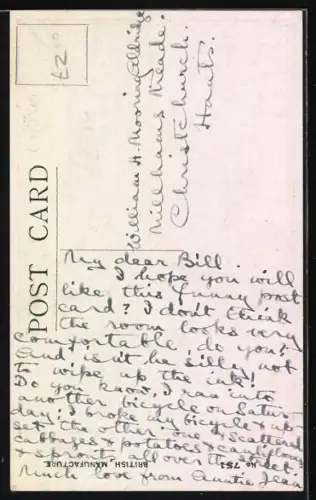 £2.00
POST CARD
William H. Mooring Aldridge
Millhams Meade.
Christchurch.
Hants.
My dear Bill.
I hope you will
like this funny post
card? I don't think
the room looks very
comfortable, do you?
And isn't he silly not
to wipe up the ink!
Do you know, I ran into
another bicycle on Satur-
day; I broke my bicycle & up-
set the other one & scattered
cabbages & potatoes & cauliflowers
& sprouts all over the street.
Much love from Auntie Jean
BRITISH MANUFACTURE
No 751